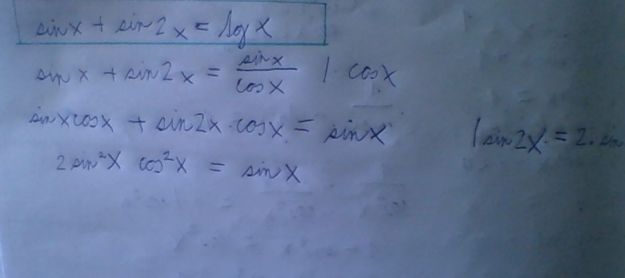 sin x + sin 2x = tg x
sin x + sin 2x = sin x / cos x | · cos x
sin x cos x + sin 2x · cos x = sin x
| sin 2x = 2 · sin
2 sin²x cos²x = sin x